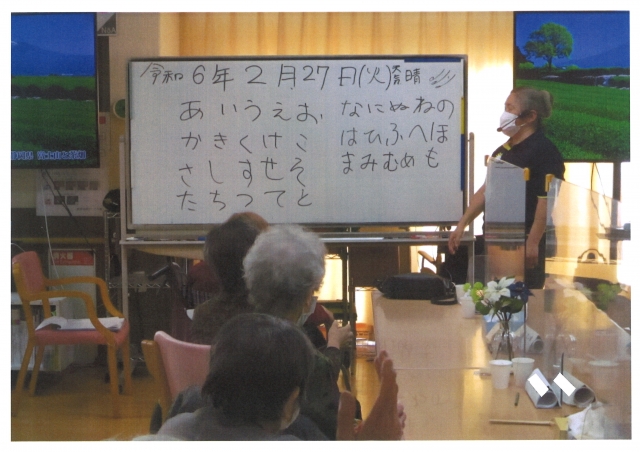 令和 6年2月27日(火) 天気 晴
あいうえお
かきくけこ
さしすせそ
たちつてと
なにぬねの
はひふへほ
まみむめも